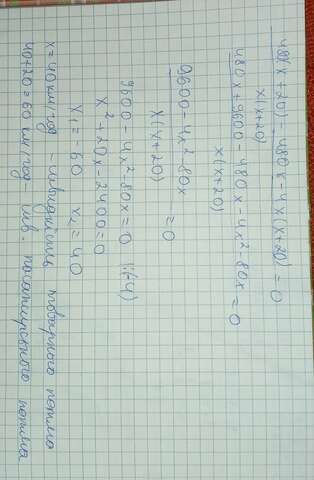 480(x+20) - 480x - 4x(x+20) = 0
x(x+20)
480x + 9600 - 480x - 4x² - 80x = 0
x(x+20)
9600 - 4x² - 80x = 0
x(x+20)
9600 - 4x² - 80x = 0 |:(-4)
x² + 20x - 2400 = 0
x₁ = -60 x₂ = 40
x = 40 км/год - швидкість товарного потяга
40+20 = 60 км/год шв. пасажирського потяга